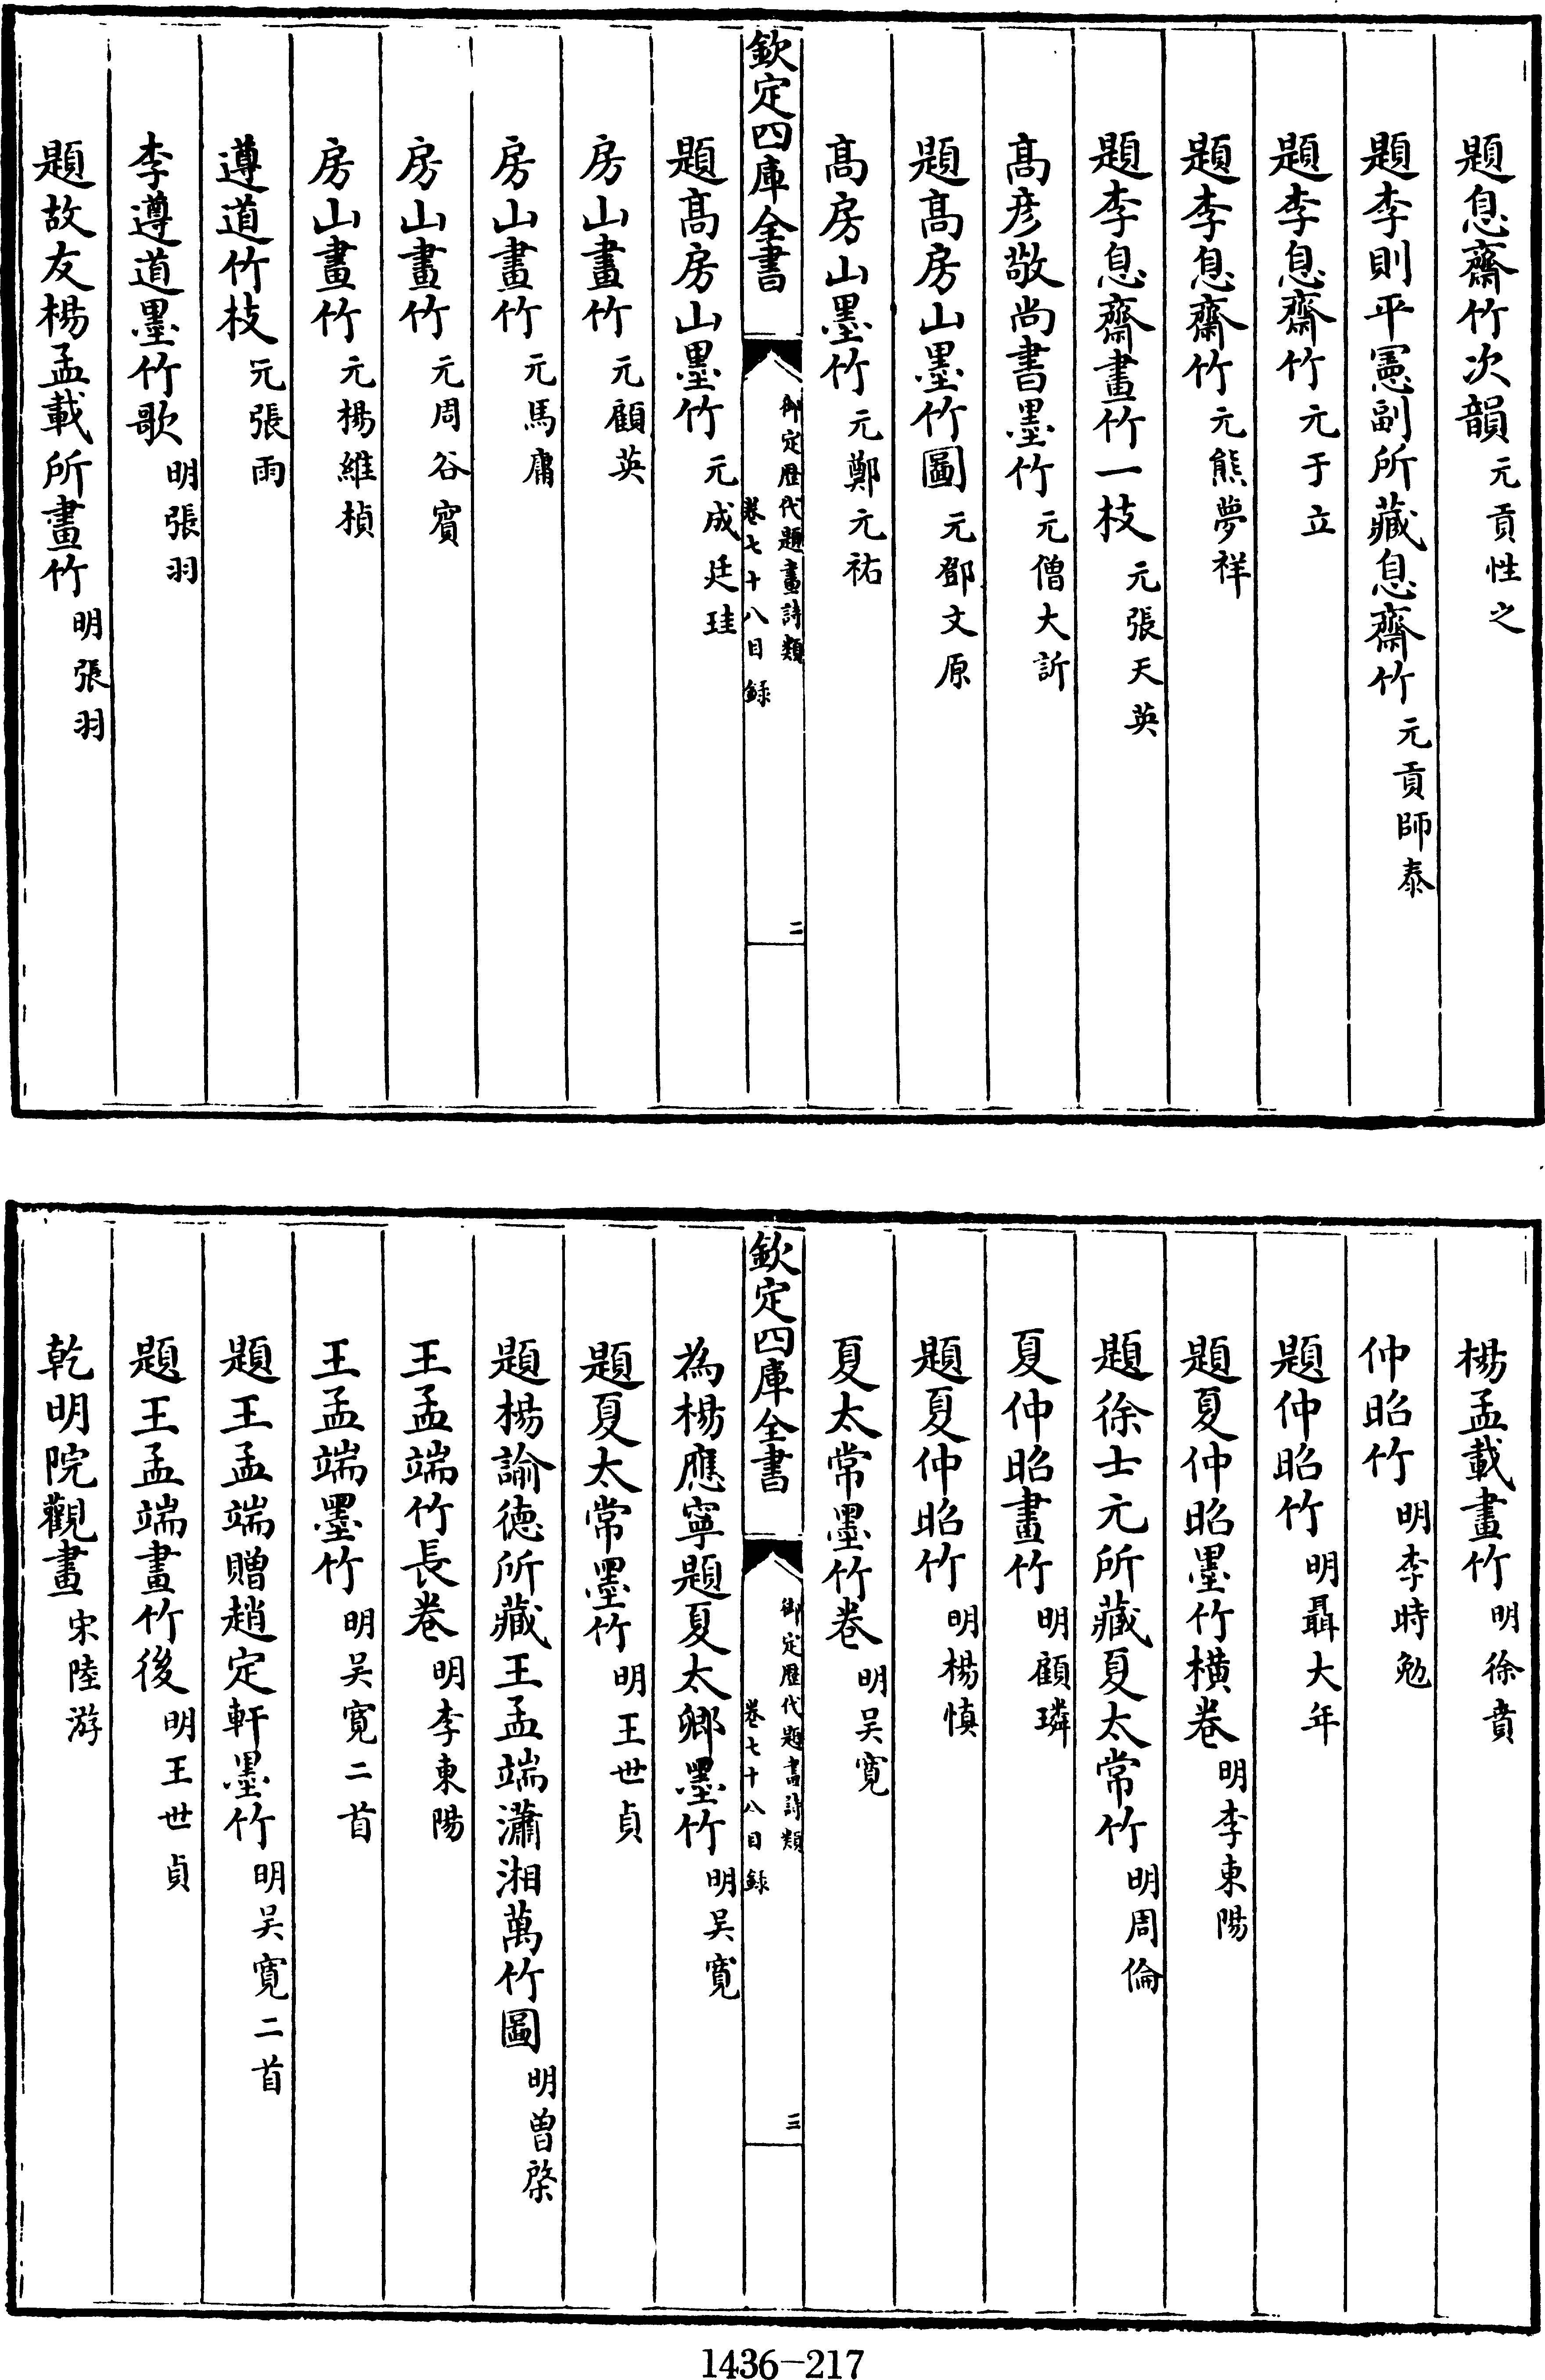 題息齋竹次韻元貢性之
題李則平憲副所藏息齋竹元貢師泰
題李息齋竹元于立
題李息齋竹元熊夢祥
題李息齋畫竹一枝元張天英
髙彦敬尚書墨竹元僧大訢
題髙房山墨竹圖元鄧文原
髙房山墨竹元鄭元祐
欽定四庫全書
御定歴代題畫詩類
卷七十八目録
二
題髙房山墨竹元成廷珪
房山畫竹元顧英
房山畫竹元馬庸
房山畫竹元周谷賓
房山畫竹元楊維楨
遵道竹枝元張雨
李遵道墨竹歌明張羽
題故友楊孟載所畫竹明張羽
楊孟載畫竹明徐賁
仲昭竹明李時勉
題仲昭竹明聶大年
題夏仲昭墨竹橫卷明李東陽
題徐士元所藏夏太常竹明周倫
夏仲昭畫竹明顧璘
題夏仲昭竹明楊慎
夏太常墨竹卷明吴寛
欽定四庫全書
御定歴代題畫詩類
卷七十八目録
三
為楊應寧題夏太卿墨竹明吴寛
題夏太常墨竹明王世貞
題楊諭徳所藏王孟端瀟湘萬竹圖明曽棨
王孟端竹長卷明李東陽
王孟端墨竹明吴寛二首
題王孟端贈趙定軒墨竹明吴寛二首
題王孟端畫竹後明王世貞
乾明院觀畫宋陸游
1436-217